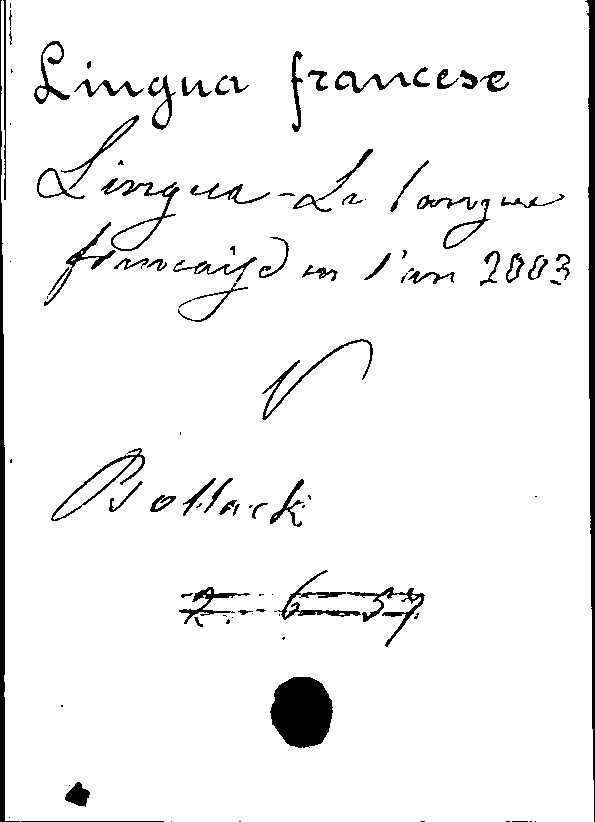 Lingua francese
Lingua - La langue
française en l'an 2003
V
Bollack
2. 6 57